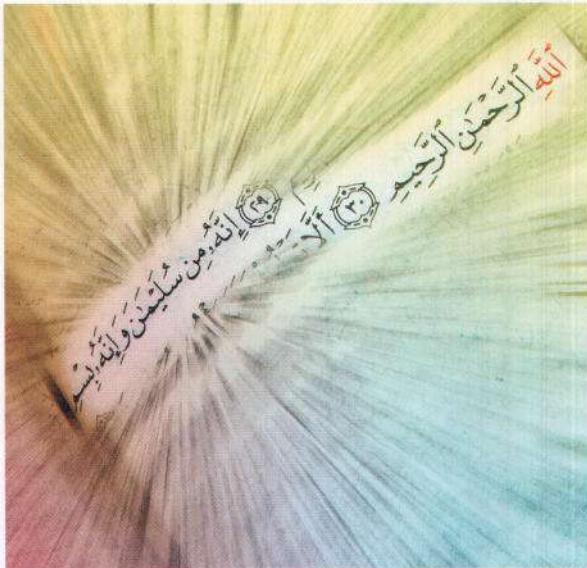 ﴿٢٩﴾ إِنَّهُۥ مِن سُلَيْمَٰنَ وَإِنَّهُۥ بِسْمِ
ٱللَّهِ ٱلرَّحْمَٰنِ ٱلرَّحِيمِ ﴿٣٠﴾ أَلَّا